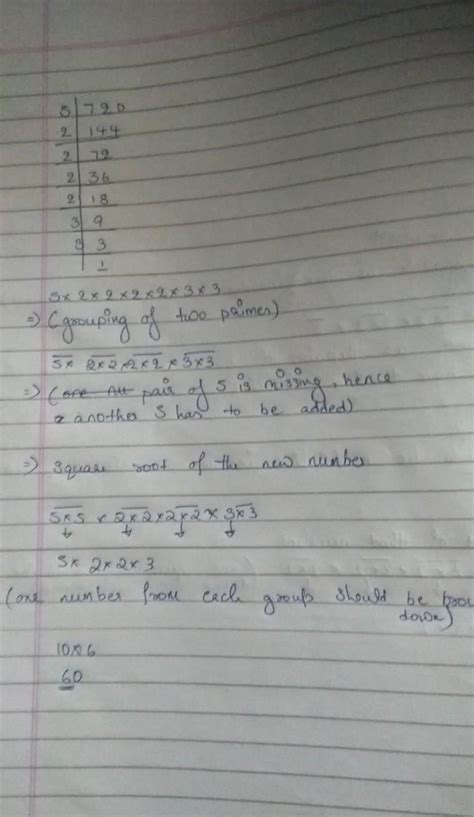 5 | 720
2 | 144
2 | 72
2 | 36
2 | 18
3 | 9
3 | 3
1
5 x 2 x 2 x 2 x 2 x 3 x 3
=> (grouping of two primes)
5 x 2 x 2 x 2 x 2 x 3 x 3
=> (one pair of 5 is missing, hence
another 5 has to be added)
=> Square root of the new number
5 x 5 x 2 x 2 x 2 x 2 x 3 x 3
5 x 2 x 2 x 3
(one number from each group should be brou
down)
10 x 6
60